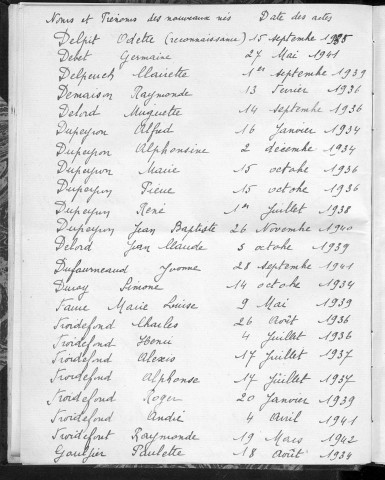 Noms et Prénoms des nouveaux nés Date des actes
Delpit Odette (reconnaissance) 15 septembre 1935
Debet Germaine 27 Mai 1941
Delpeuch Mariette 1er septembre 1939
Demaison Raymonde 13 Fevrier 1936
Delord Muguette 14 septembre 1936
Dupeyron Alfred 16 Janvier 1934
Dupeyron Alphonsine 2 décembre 1934
Dupeyron Marie 15 octobre 1936
Dupeyron Pierre 15 octobre 1936
Dupeyron René 1er Juillet 1938
Dupeyron Jean Baptiste 26 Novembre 1940
Delord Jean Claude 3 octobre 1939
Dufourneaud Yvonne 28 septembre 1941
Duroy Simone 14 octobre 1934
Faure Marie Louise 9 Mai 1939
Froidefond Charles 26 Août 1936
Froidefond Henri 4 Juillet 1936
Froidefond Alexis 17 Juillet 1937
Froidefond Alphonse 17 Juillet 1937
Froidefond Roger 20 Janvier 1939
Froidefond André 4 Avril 1941
Froidefont Raymonde 19 Mars 1942
Gaultier Paulette 18 Août 1934